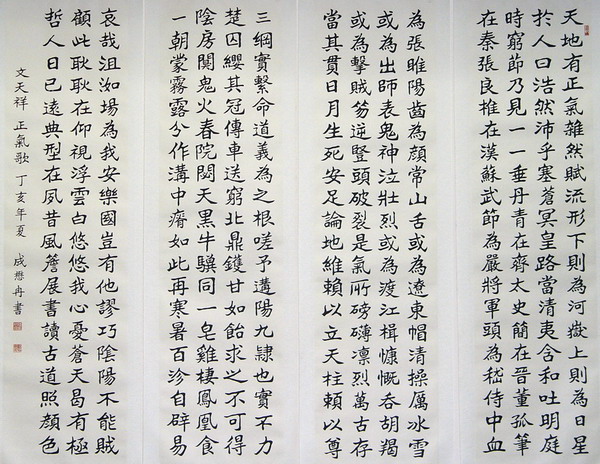 天地有正氣雜然賦流形下則為河嶽上則為日星
於人曰浩然沛乎塞蒼冥皇路當清夷含和吐明庭
時窮節乃見一一垂丹青在齊太史簡在晉董狐筆
在秦張良椎在漢蘇武節為嚴將軍頭為嵇侍中血
為張睢陽齒為顏常山舌或為遼東帽清操厲冰雪
或為出師表鬼神泣壯烈或為渡江楫慷慨吞胡羯
或為擊賊笏逆豎頭破裂是氣所磅礡凜烈萬古存
當其貫日月生死安足論地維賴以立天柱賴以尊
三綱實繫命道義為之根嗟予遘陽九隸也實不力
楚囚纓其冠傳車送窮北鼎鑊甘如飴求之不可得
陰房闃鬼火春院閟天黑牛驥同一皂雞棲鳳凰食
一朝蒙霧露分作溝中瘠如此再寒暑百沴自辟易
哀哉沮洳場為我安樂國豈有他謬巧陰陽不能賊
顧此耿耿在仰視浮雲白悠悠我心憂蒼天曷有極
哲人日已遠典型在夙昔風簷展書讀古道照顏色
文天祥 正氣歌 丁亥年夏 成懋冉書